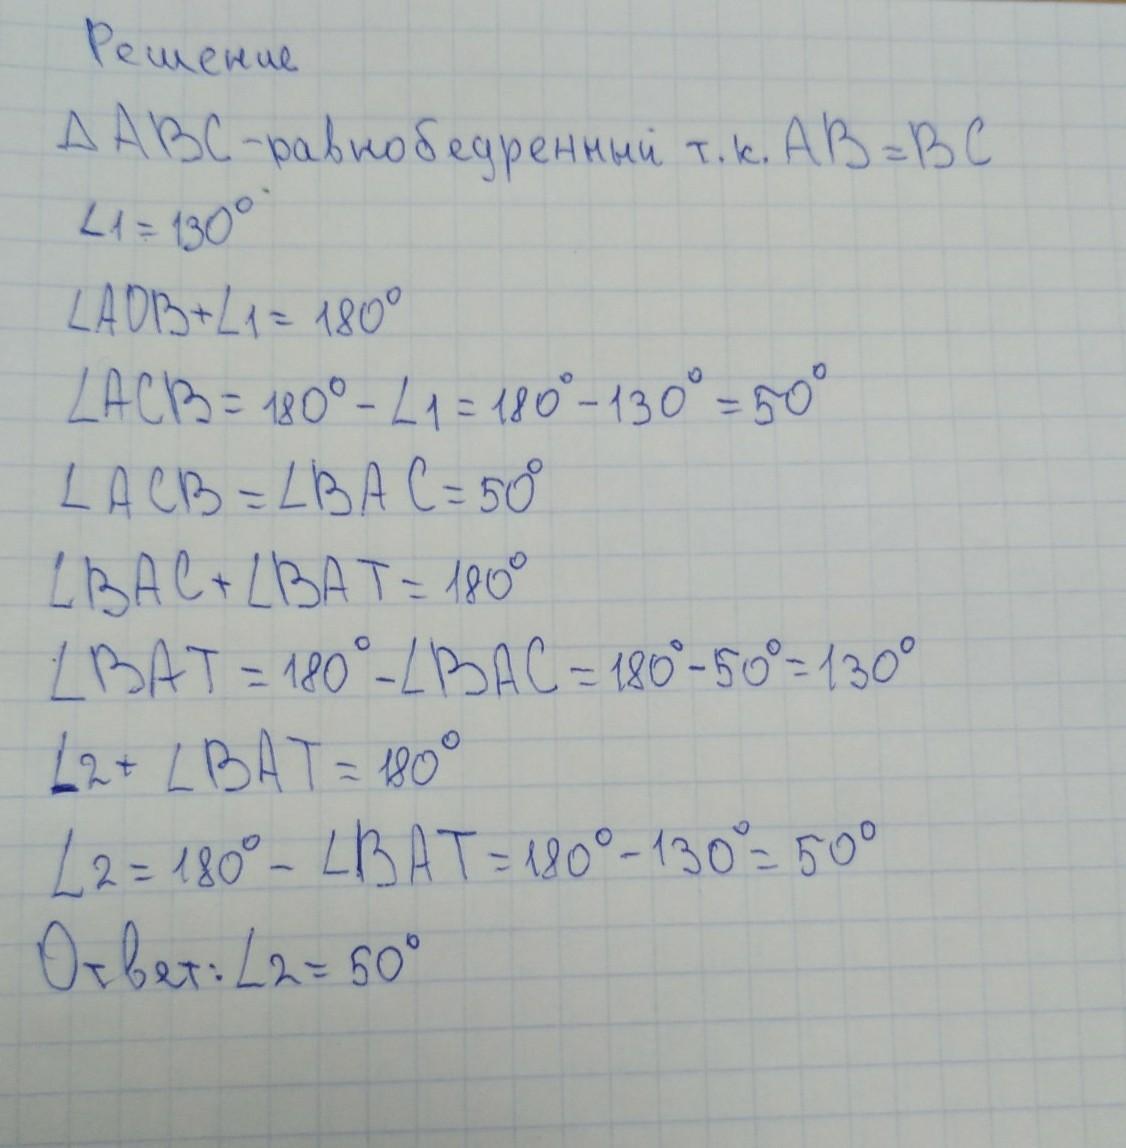 Решение
Δ ABC - равнобедренный т.к. AB = BC
∠1 = 130°
∠AOB + ∠1 = 180°
∠ACB = 180° - ∠1 = 180° - 130° = 50°
∠ACB = ∠BAC = 50°
∠BAC + ∠BAT = 180°
∠BAT = 180° - ∠BAC = 180° - 50° = 130°
∠2 + ∠BAT = 180°
∠2 = 180° - ∠BAT = 180° - 130° = 50°
Ответ: ∠2 = 50°